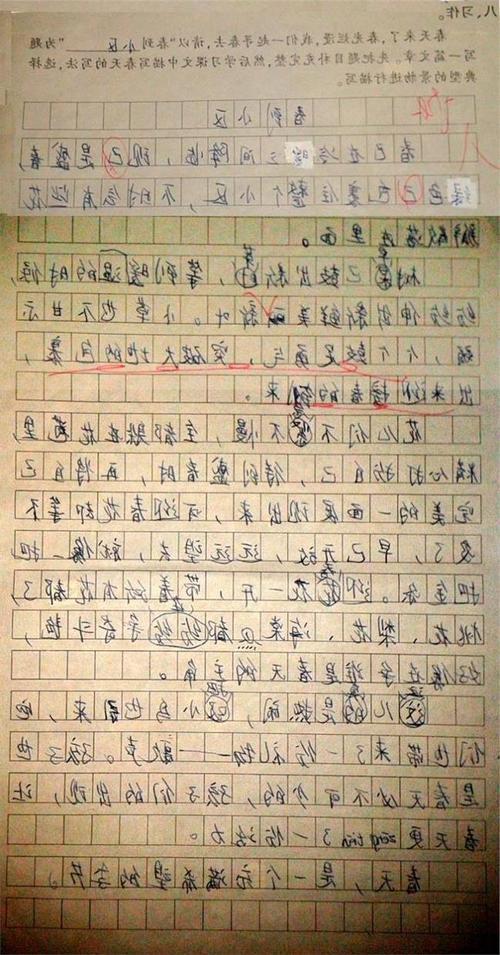 八、习作。
春天来了，春光烂漫，我们一起寻春去，请以“春到 小区 ”为题
写一篇文章。先把题目补充完整，然后学习课文中描写春天的写法，选择
典型的景物进行描写。
春到小区
春已在冷暖之间降临，现已是盛春，
绿色已包裹住整个小区，不时会有些花
瓣散落在里面。
树早已鼓出新芽，等到暖的温时候，
纷纷伸出新鲜美丽新叶。小草也不甘示
弱，个个鼓足勇气，突破大地的包裹，
出来迎接春的到来。
花儿们不急不慢，全都在躲在花苞里，
精心打扮自己，待到盛春时，再将自己
完美的一面展现出来，可迎春花却等不
及了，早已开放，远远望去，就像一把
把金伞。迎春花一开，带着所有花都了，
桃花、梨花、海棠都纷纷争奇斗艳，
好像在争谁是春天的主角。
这儿的是热闹，小鸟也来，它
们也带来了一份礼物——歌声。孩子也
是春天必不可少的，孩子们的出现，让
春天更zēng tiān了一份活力。
春天，是一个充满希望的季节。